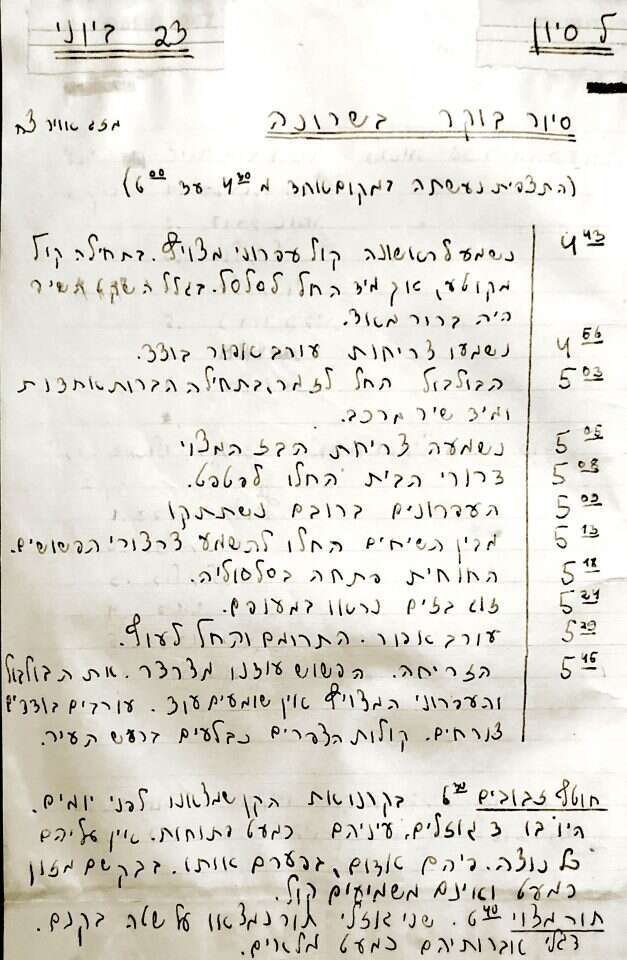 ל סיון
23 ביוני
סיור בוקר בשרונה
מזג אוויר צח
(התצפית נעשתה במקום אחד מ 4³⁰ עד 6⁰⁰)
4⁴³ נשמע לראשונה קול עפרוני מצויץ. בתחילה קול
מקוטע, אך מיד החל לסלסל. בגלל השקט השיר
היה ברור מאוד.
4⁵⁶ נשמעו צריחות עורב אפור בודד.
5⁰³ הבולבול החל לזמר, בתחילה הברות אחדות
ומיד שיר מרכב.
5⁰⁵ נשמעה צריחת הבז המצוי
5⁰⁸ דרורי הבית החלו לפטפט.
5⁰⁹ העפרונים ברובם נשתתקו
5¹³ מבין השיחים החלו להשמע צרצורי הפשושים.
5¹⁸ החוחית פתחה בסלסוליה.
5²⁴ זוג בזים נראו במעופם.
5²⁹ עורב אפור. התרומם והחל לעוף.
5⁴⁵ הזריחה. הפשוש עודנו מצרצר. את הבולבול
והעפרוני המצויץ אין שומעים עוד. עורבים בודדים
צורחים. קולות הצפרים נבלעים ברעש העיר.
חוטף זבובים 6³⁰ בקרנו את הקן שמצאנו לפני יומים.
היו בו 3 גוזלים, עיניהם כמעט פתוחות. אין עליהם
כל נוצה. פיהם אדום, בפערם אותו. בבקשם מזון
כמעט ואינם משמיעים קול.
תור מצוי 6⁴⁰. שני גוזלי תור נמצאו על שטה בקנם.
דגלי אברותיהם כמעט מלאים.